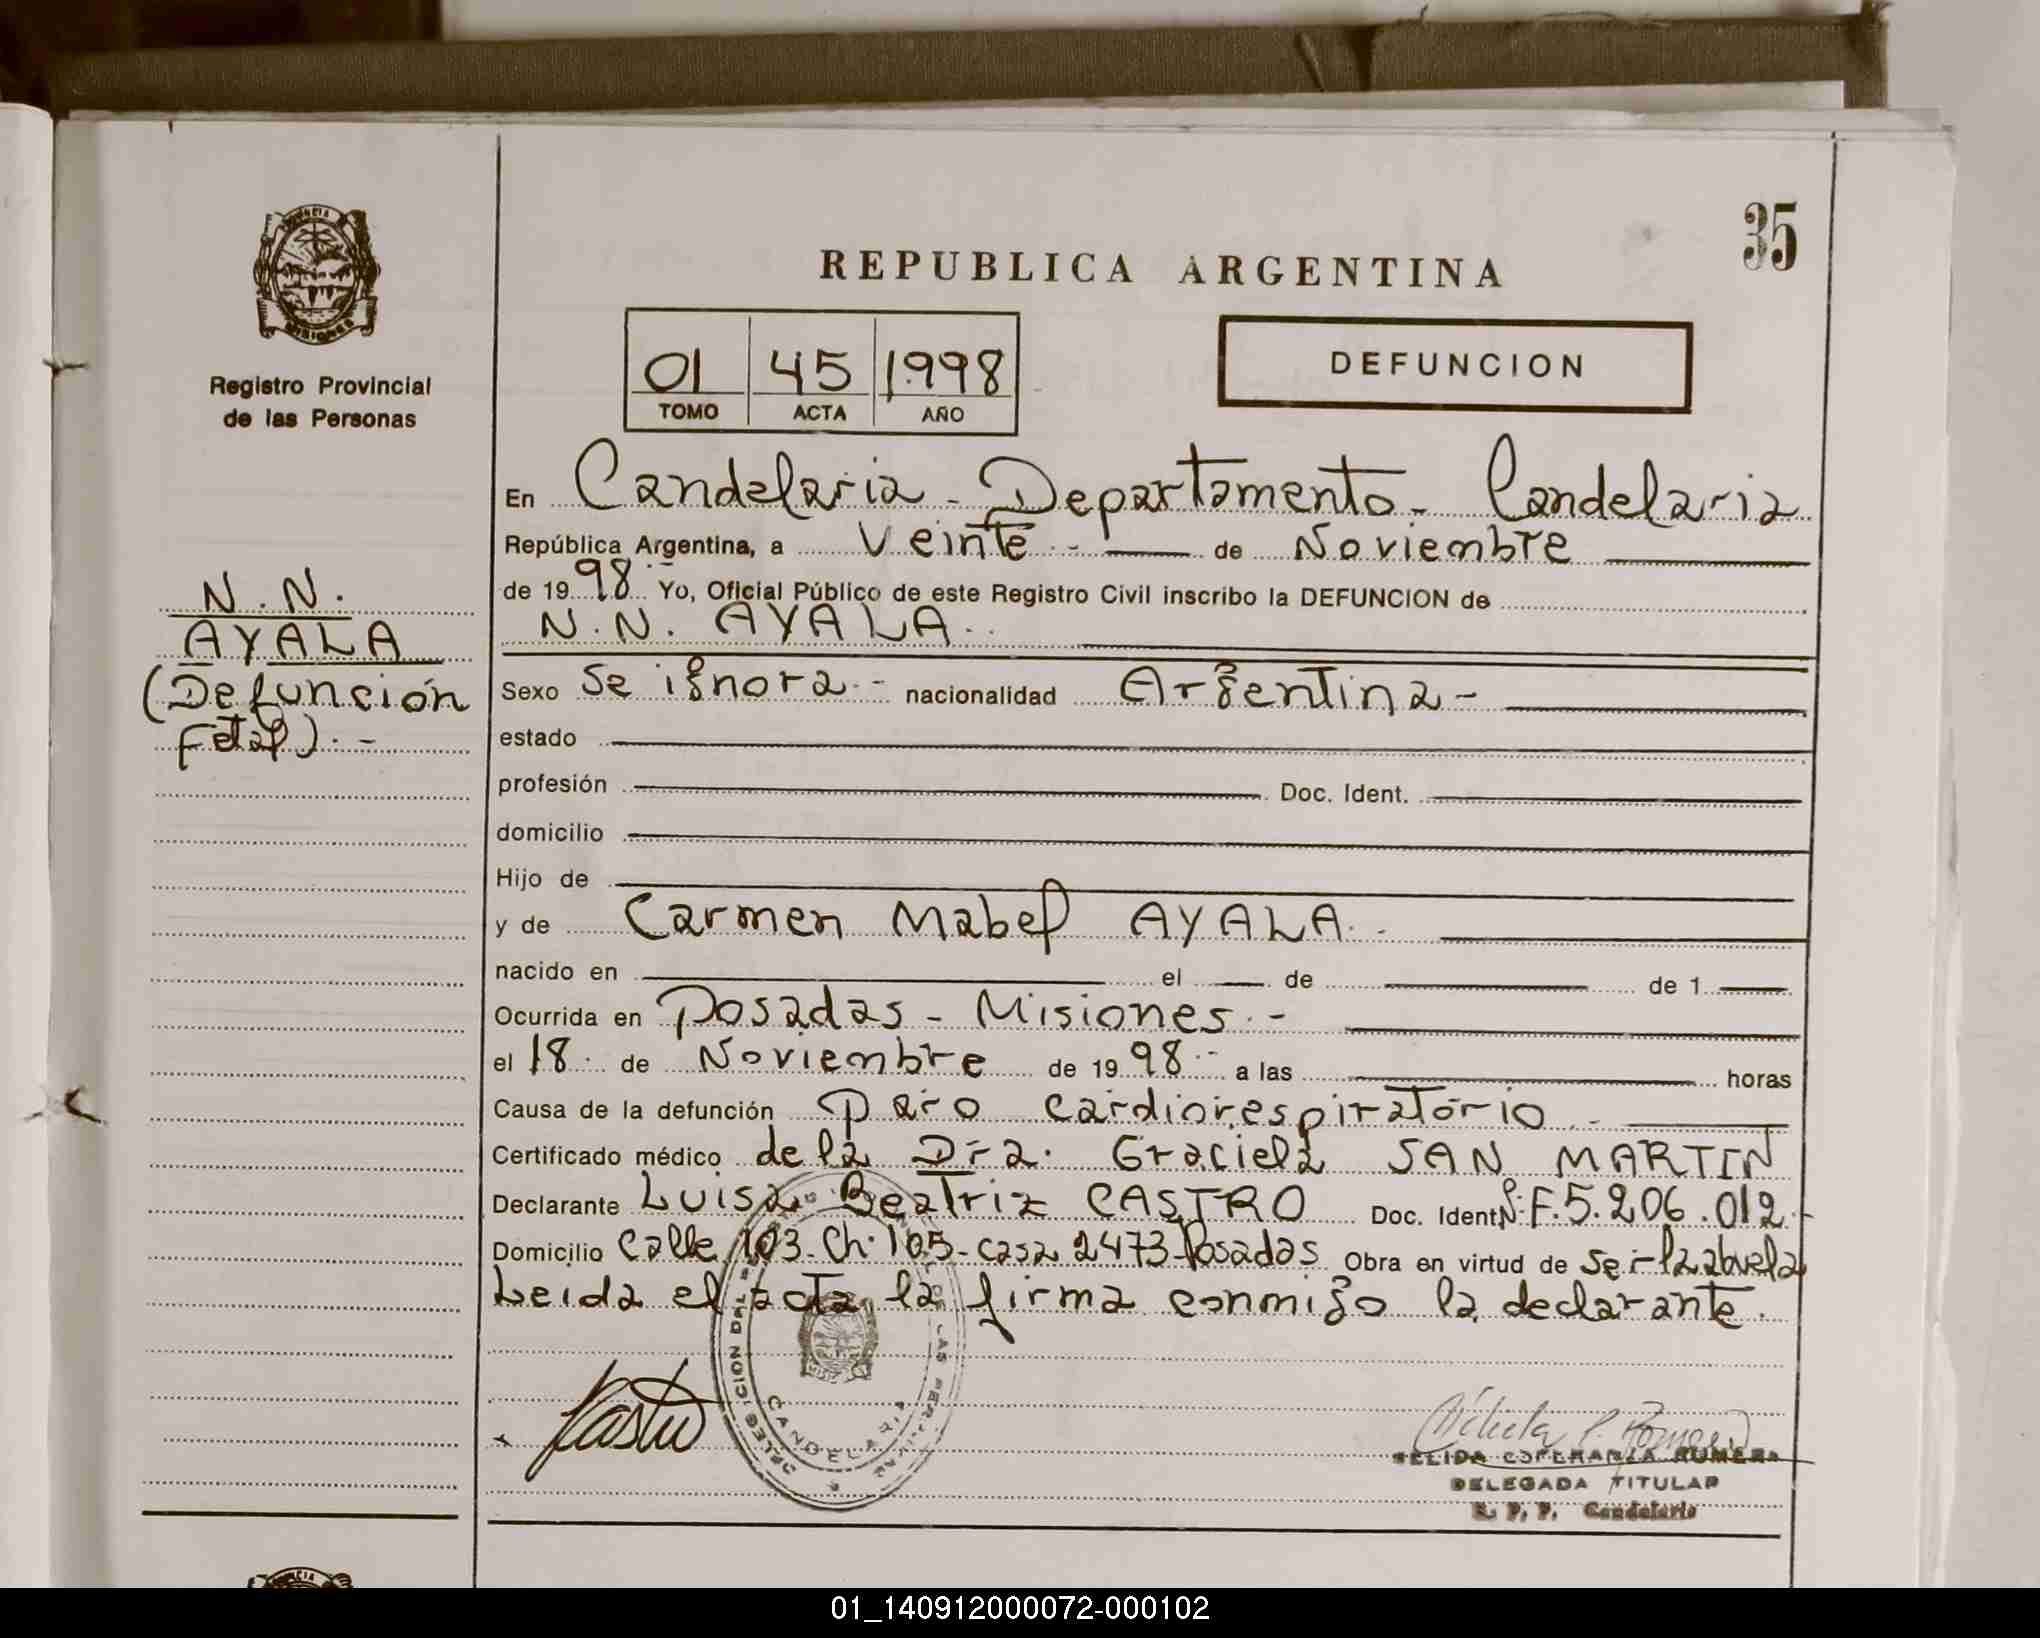 35
REPUBLICA ARGENTINA
PROVINCIA
MISIONES
Registro Provincial
de las Personas
01 45 1.998
TOMO ACTA AÑO
DEFUNCION
N.N.
AYALA
(Defunción
Fetal).-
En Candelaria - Departamento - Candelaria
República Argentina, a Veinte.- de Noviembre
de 1998.- Yo, Oficial Público de este Registro Civil inscribo la DEFUNCION de
N.N. AYALA.
Sexo Se ignora.- nacionalidad Argentina-
estado
profesión Doc. Ident.
domicilio
Hijo de
y de Carmen Mabel AYALA.-
nacido en el de de 1
Ocurrida en Posadas - Misiones.-
el 18. de Noviembre de 1998.- a las horas
Causa de la defunción Paro cardiorespiratorio.-
Certificado médico de la Dra. Graciela SAN MARTIN
Declarante Luisa Beatriz CASTRO Doc. Ident. F.5.206.012-
Domicilio Calle 103-Ch.105-casa 2473-Posadas Obra en virtud de Ser la abuela
Leida el acta la firma conmigo la declarante.
Castro
CANDELARIA
DELEGADA TITULAR
R. P. P. Candelaria
01_140912000072-000102